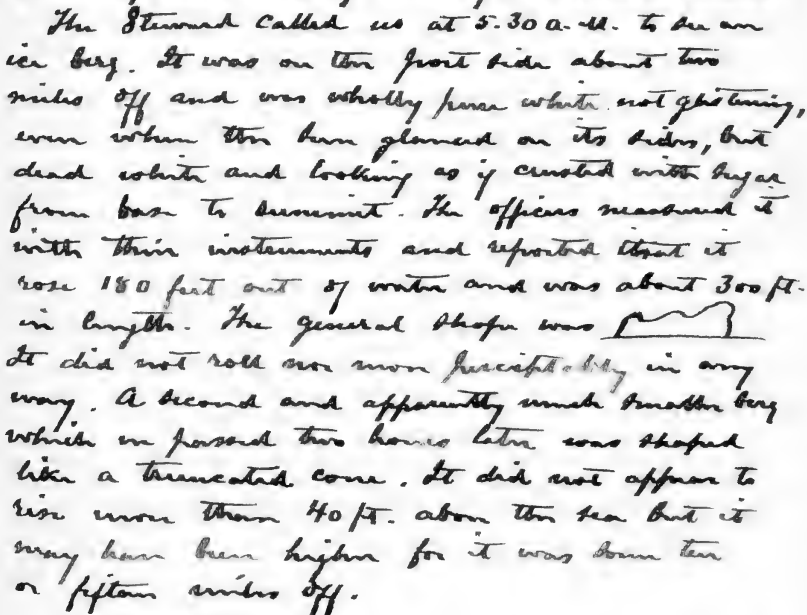 The Steward called us at 5.30 a.m. to see an
ice berg. It was on the port side about two
miles off and was wholly pure white not glistening,
even when the sun glanced on its sides, but
dead white and looking as if crusted with sugar
from base to summit. The officers measured it
with their instruments and reported that it
rose 180 feet out of water and was about 300 ft.
in length. The general shape was
It did not roll nor move perceptibly in any
way. A second and apparently much smaller berg
which we passed two hours later was shaped
like a truncated cone. It did not appear to
rise more than 40 ft. above the sea but it
may have been higher for it was some ten
or fifteen miles off.